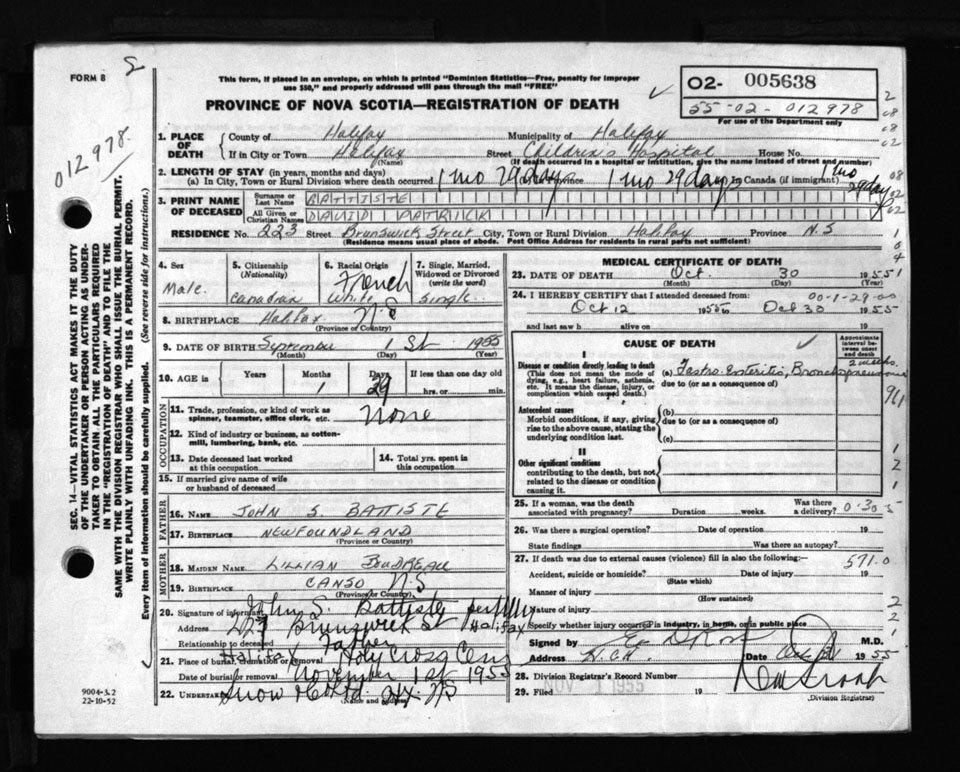 FORM 8
2
This form, if placed in an envelope, on which is printed "Dominion Statistics—Free, penalty for improper
use $50," and properly addressed will pass through the mail "FREE"
PROVINCE OF NOVA SCOTIA—REGISTRATION OF DEATH
02- 005638
55-02-012978
For use of the Department only
012978.
SEC. 14—VITAL STATISTICS ACT MAKES IT THE DUTY
OF THE UNDERTAKER OR PERSON ACTING AS UNDER-
TAKER TO OBTAIN ALL THE PARTICULARS REQUIRED
IN THE "REGISTRATION OF DEATH" AND TO FILE THE
SAME WITH THE DIVISION REGISTRAR WHO SHALL ISSUE THE BURIAL PERMIT.
WRITE PLAINLY WITH UNFADING INK. THIS IS A PERMANENT RECORD.
Every item of information should be carefully supplied. (See reverse side for instructions.)
1. PLACE OF DEATH
County of Halifax Municipality of Halifax
If in City or Town Halifax Street Children's Hospital House No.
(Name) (If death occurred in a hospital or institution, give the name instead of street and number)
2. LENGTH OF STAY (in years, months and days)
(a) In City, Town or Rural Division where death occurred 1 mo 29 days 1 mo 29 days In Canada (if immigrant) 1 mo 29 days
3. PRINT NAME OF DECEASED
Surname or Last Name BATTISTE
All Given or Christian Names DAVID PATRICK
RESIDENCE No. 223 Street Brunswick Street City, Town or Rural Division Halifax Province N.S
(Residence means usual place of abode. Post Office Address for residents in rural parts not sufficient)
4. Sex Male.
5. Citizenship (Nationality) Canadian
6. Racial Origin French White
7. Single, Married, Widowed or Divorced (write the word) Single
8. BIRTHPLACE Halifax N.S
(Province or Country)
9. DATE OF BIRTH September 1 St 1955
(Month) (Day) (Year)
10. AGE Years Months 1 Days 29 If less than one day old hrs. or min.
OCCUPATION
11. Trade, profession, or kind of work as spinner, teamster, office clerk, etc. None
12. Kind of industry or business, as cotton-mill, lumbering, bank, etc.
13. Date deceased last worked at this occupation
14. Total yrs. spent in this occupation
15. If married give name of wife or husband of deceased
FATHER
16. NAME JOHN S. BATTISTE
17. BIRTHPLACE NEWFOUNDLAND
(Province or Country)
MOTHER
18. MAIDEN NAME LILLIAN BOUDREAU
19. BIRTHPLACE CANSO N.S
(Province or Country)
20. Signature of informant John S. Battiste
Address Brunswick St Halifax
Relationship to deceased Father
21. Place of burial, cremation or removal Halifax Holy Cross Cem
Date of burial or removal November 1st 1955
22. UNDERTAKER Snow
(Name and address)
9004-3.2
22-10-52
MEDICAL CERTIFICATE OF DEATH
23. DATE OF DEATH Oct. 30 1955
(Month) (Day)
24. I HEREBY CERTIFY that I attended deceased from:
00-1-29-00
Oct 12 1955 to Oct 30 1955
and last saw h alive on 19
CAUSE OF DEATH
Approximate interval between onset and death
I
Disease or condition directly leading to death
(This does not mean the mode of dying, e.g., heart failure, asthenia, etc. It means the disease, injury, or complication which caused death.)
(a) Gastro-Enteritis, Bronchopneumonia 2 weeks
due to (or as a consequence of)
Antecedent causes
Morbid conditions, if any, giving rise to the above cause, stating the underlying condition last.
(b)
due to (or as a consequence of)
(c)
II
Other significant conditions
contributing to the death, but not related to the disease or condition causing it.
25. If a woman, was the death associated with pregnancy? Duration weeks. Was there a delivery?
26. Was there a surgical operation? Date of operation 19
State findings Was there an autopsy?
27. If death was due to external causes (violence) fill in also the following:— 571.0
Accident, suicide or homicide? Date of injury 19
(State which)
Manner of injury
(How sustained)
Nature of injury
Specify whether injury occurred in industry, in home, or in public place
Signed by M.D.
Address H.C.H. Date Oct 31 1955
28. Division Registrar's Record Number
29. Filed NOV 1 1955 19
(Division Registrar)